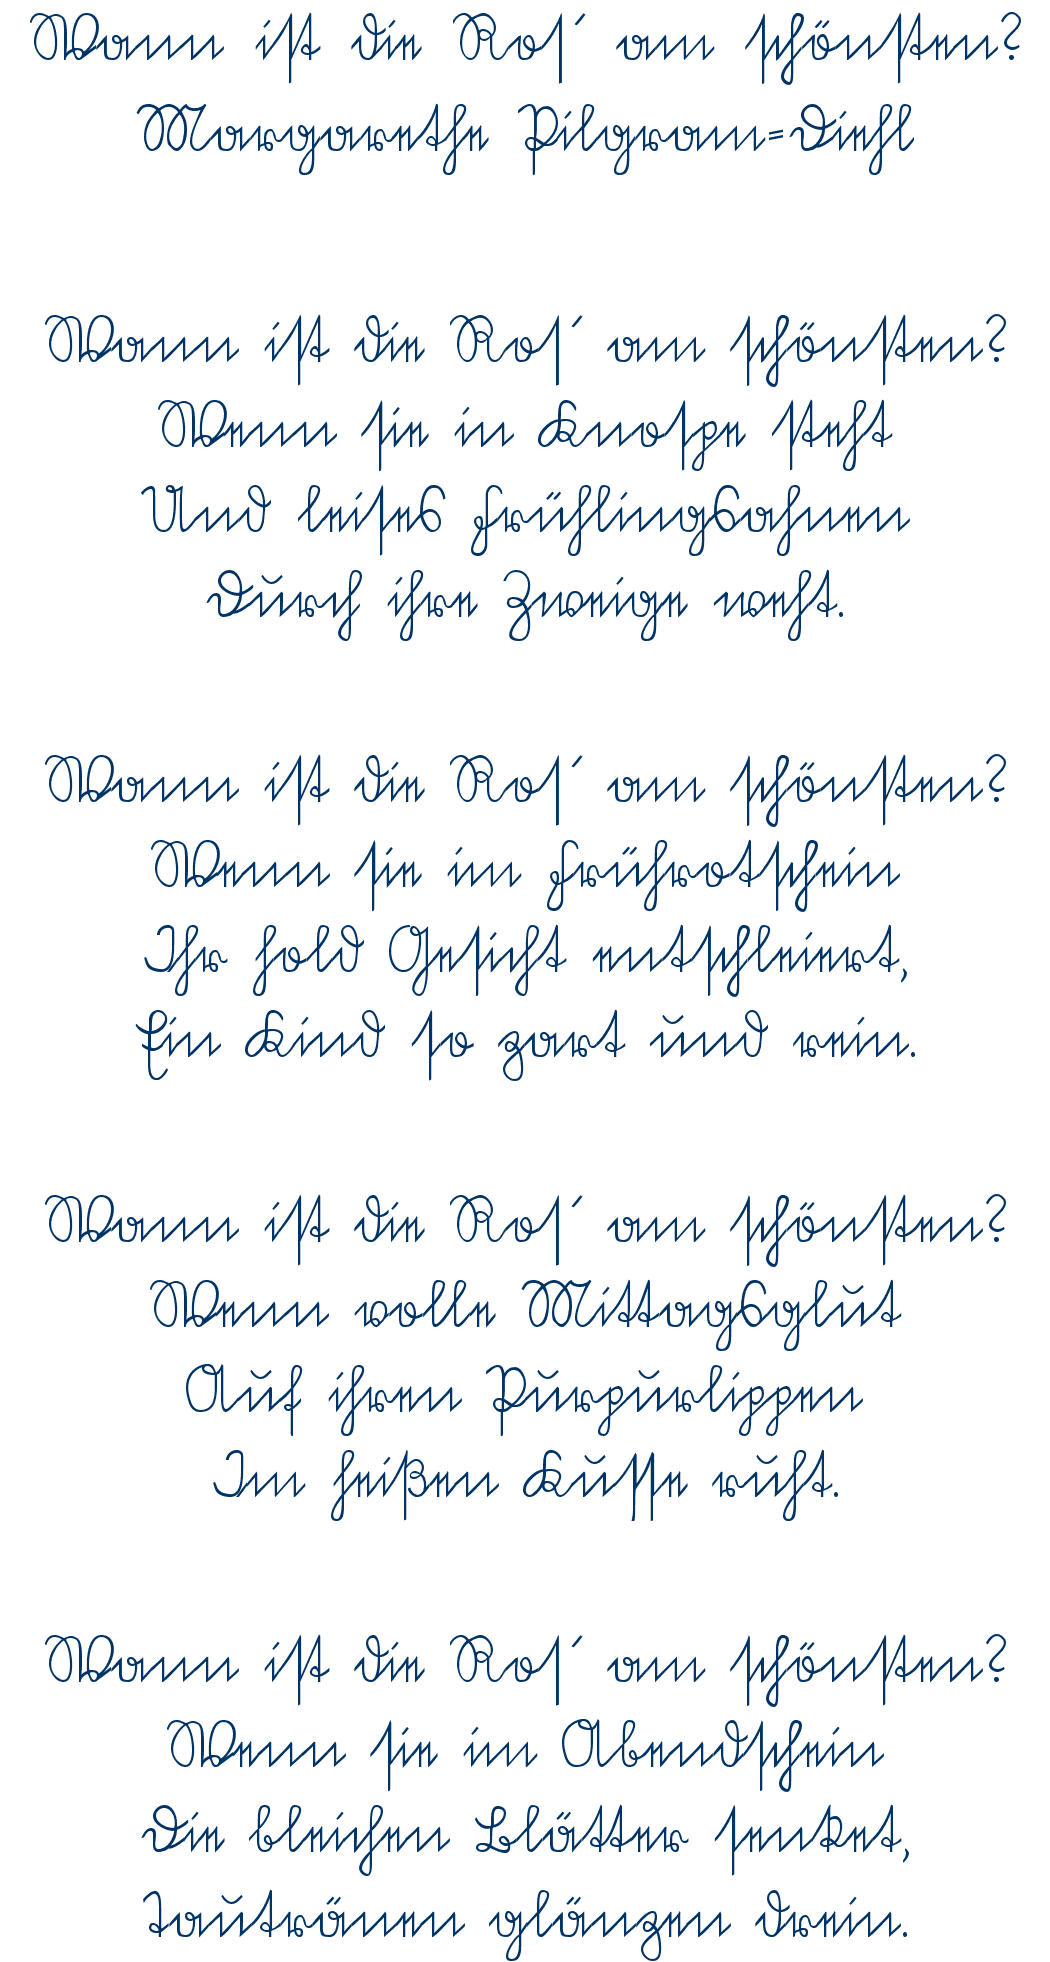 Wann ist die Ros´ am schönsten?
Margarethe Pilgram-Diehl
Wann ist die Ros´ am schönsten?
Wenn sie in Knospe steht
Und leises Frühlingsahnen
Durch ihre Zweige weht.
Wann ist die Ros´ am schönsten?
Wenn sie im Frührotschein
Ihr hold Gesicht entschleiert,
Ein Kind so zart und rein.
Wann ist die Ros´ am schönsten?
Wenn volle Mittagsglut
Auf ihren Purpurlippen
Im heißen Kusse ruht.
Wann ist die Ros´ am schönsten?
Wenn sie im Abendschein
Die bleichen Blätter senket,
Tautränen glänzen drein.